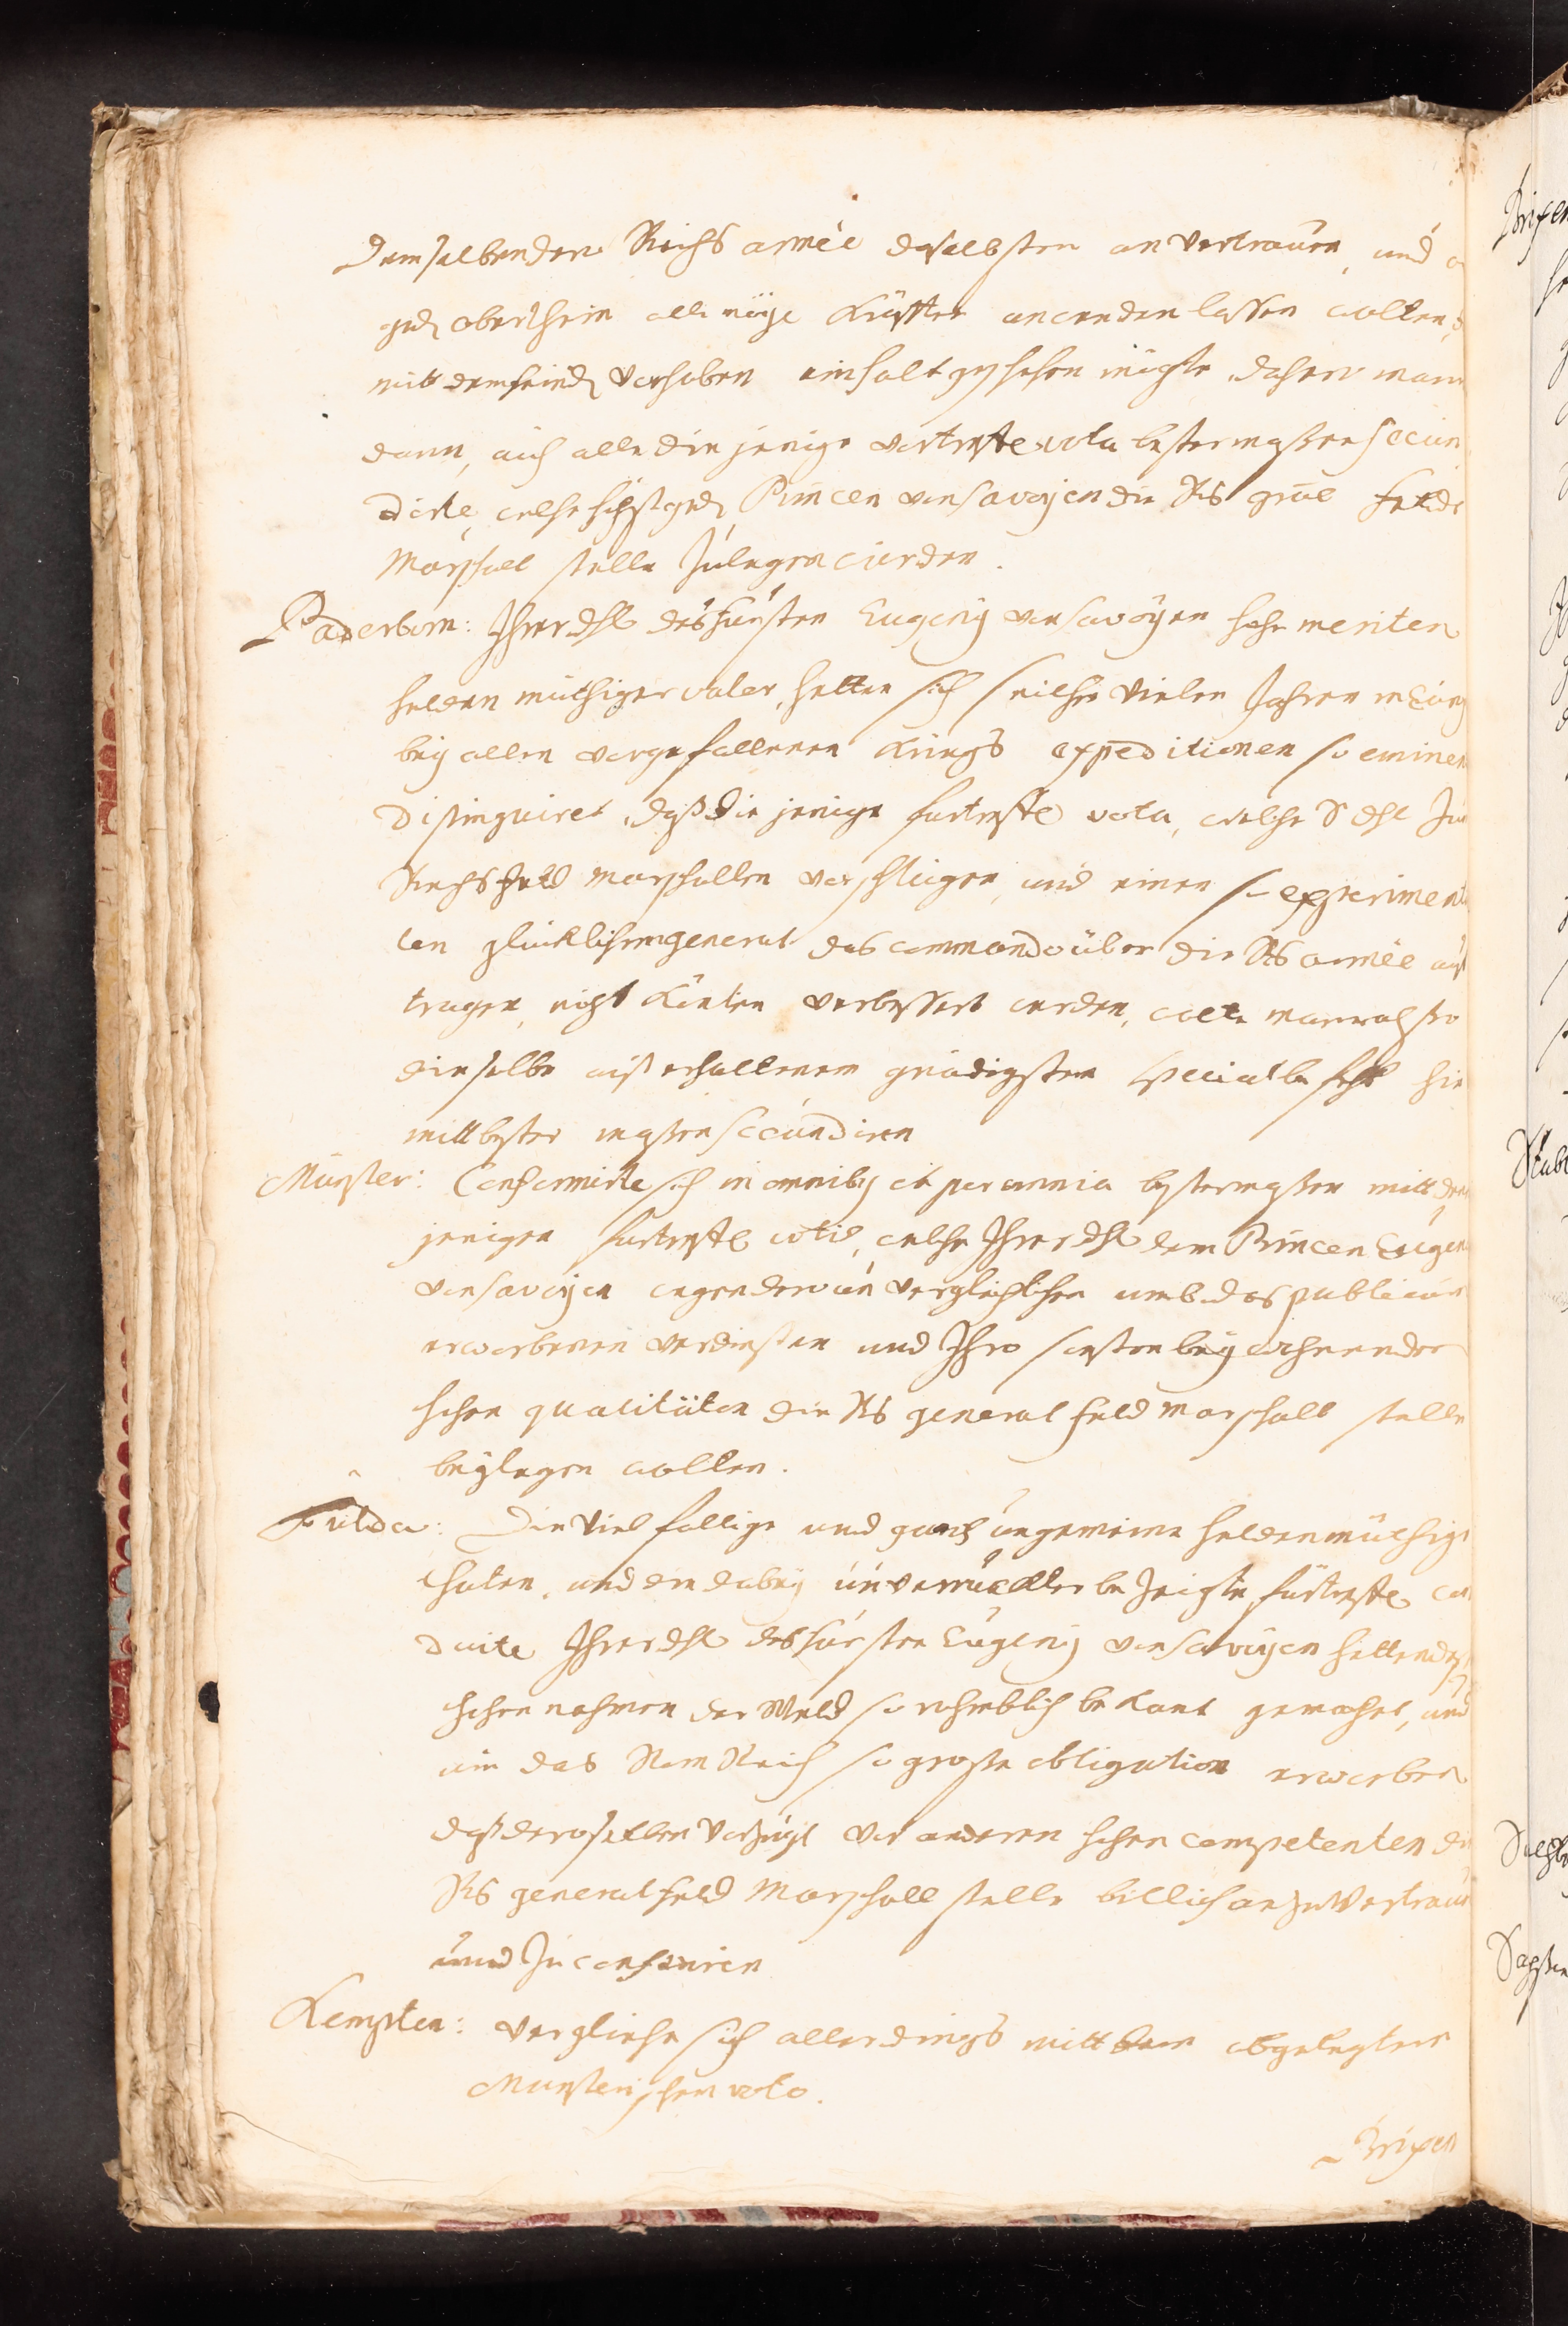 demselben der Reichs armée daselbsten an vertrauen, und a
gedh oberrhein alle möge Kräffte anwenden lassen wolten,
mitt dem feindh vorhaben einhalt geschehen mögte, dahero man
dann, auch alle die jenige vortreffl vota bestermaßen secun
dirte, welche höchstgedh Princen von Savoyen die Rhs gnãl feldt
Marschall stelle zulegen würden.
Paderborn: Ihrer dhl des Fürsten Eugenij von Savoyen hohe meriten
helden müthiger valor, hetten sich seither vielen Jahren
bey allen vorgefallenen Kriegs expeditionen so eminen
distinguiret, daß die jenige furtreffl vota, welche S dhl zu
Reichs Feld Marschallen vorschlügen, und einen so experimen
ten glücklichen general das commando über die Rhs armée auf
tragen, nicht Könten verbessert werden, wolte man
dieselbe auß erhaltenem gnädigsten special befehl hie
mitt bester maßen secundiren
Münster: Conformirte sich in omnibus et per omnia bestermaßen mitt den
jenigen furtreffl votis, welche Ihrer dhl dem Princen Eugen
von Savoyen wegen dero unvergleichlichen umb das publicum
erworbenen verdiensten und Ihro sonsten beywohnender
hohen qualitäten die Rhs general feld Marschall stelle
beylegen wolten.
Fulda: Die vielfältige und gantz ungemeine heldenmüthige
thaten, und die dabey unverruckter bezeigte fürtreffl con
duite Ihrer dhl des Fürsten Eugenij von Savoyen hetten deß
hohen nahmen der Weld so rühmblich bekant gemacht, und
umb das Röm Reich so große obligation erworben
daß deroselben vorzügl vor anderen hohen competenten die
Rhs general feld Marschall stelle billich anzuvertrauen
und zu conferiren
Kempten: vergliche sich allerdings mitt dem abgelegten
Munsterischen voto.
Brixen